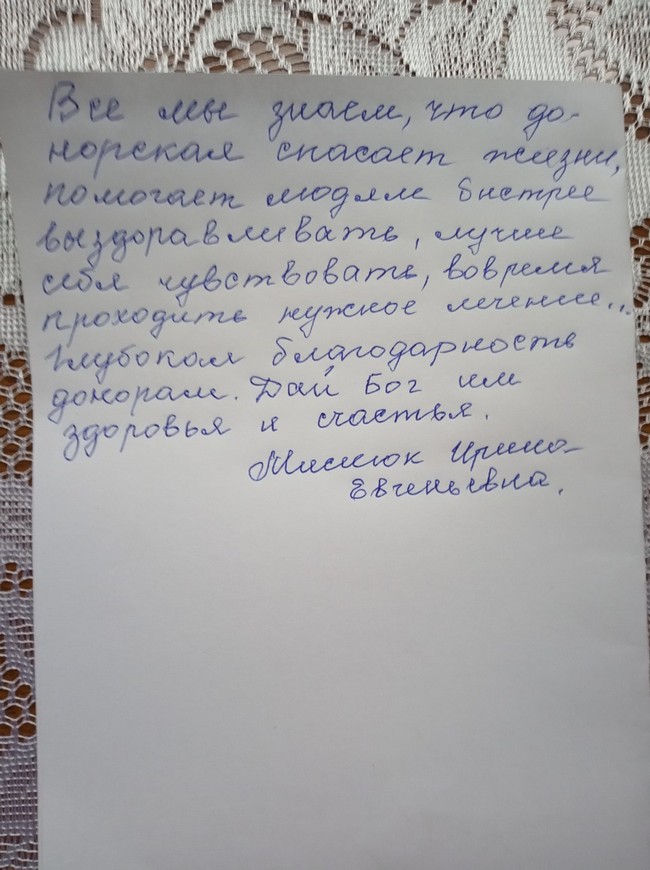 Все мы знаем, что до-
норская спасает жизни,
помогает людям быстрее
выздоравливать, лучше
себя чувствовать, вовремя
проходить нужное лечение...
Глубокой благодарность
донорам. Дай Бог им
здоровья и счастья.
Ирина
Евгеньевна.